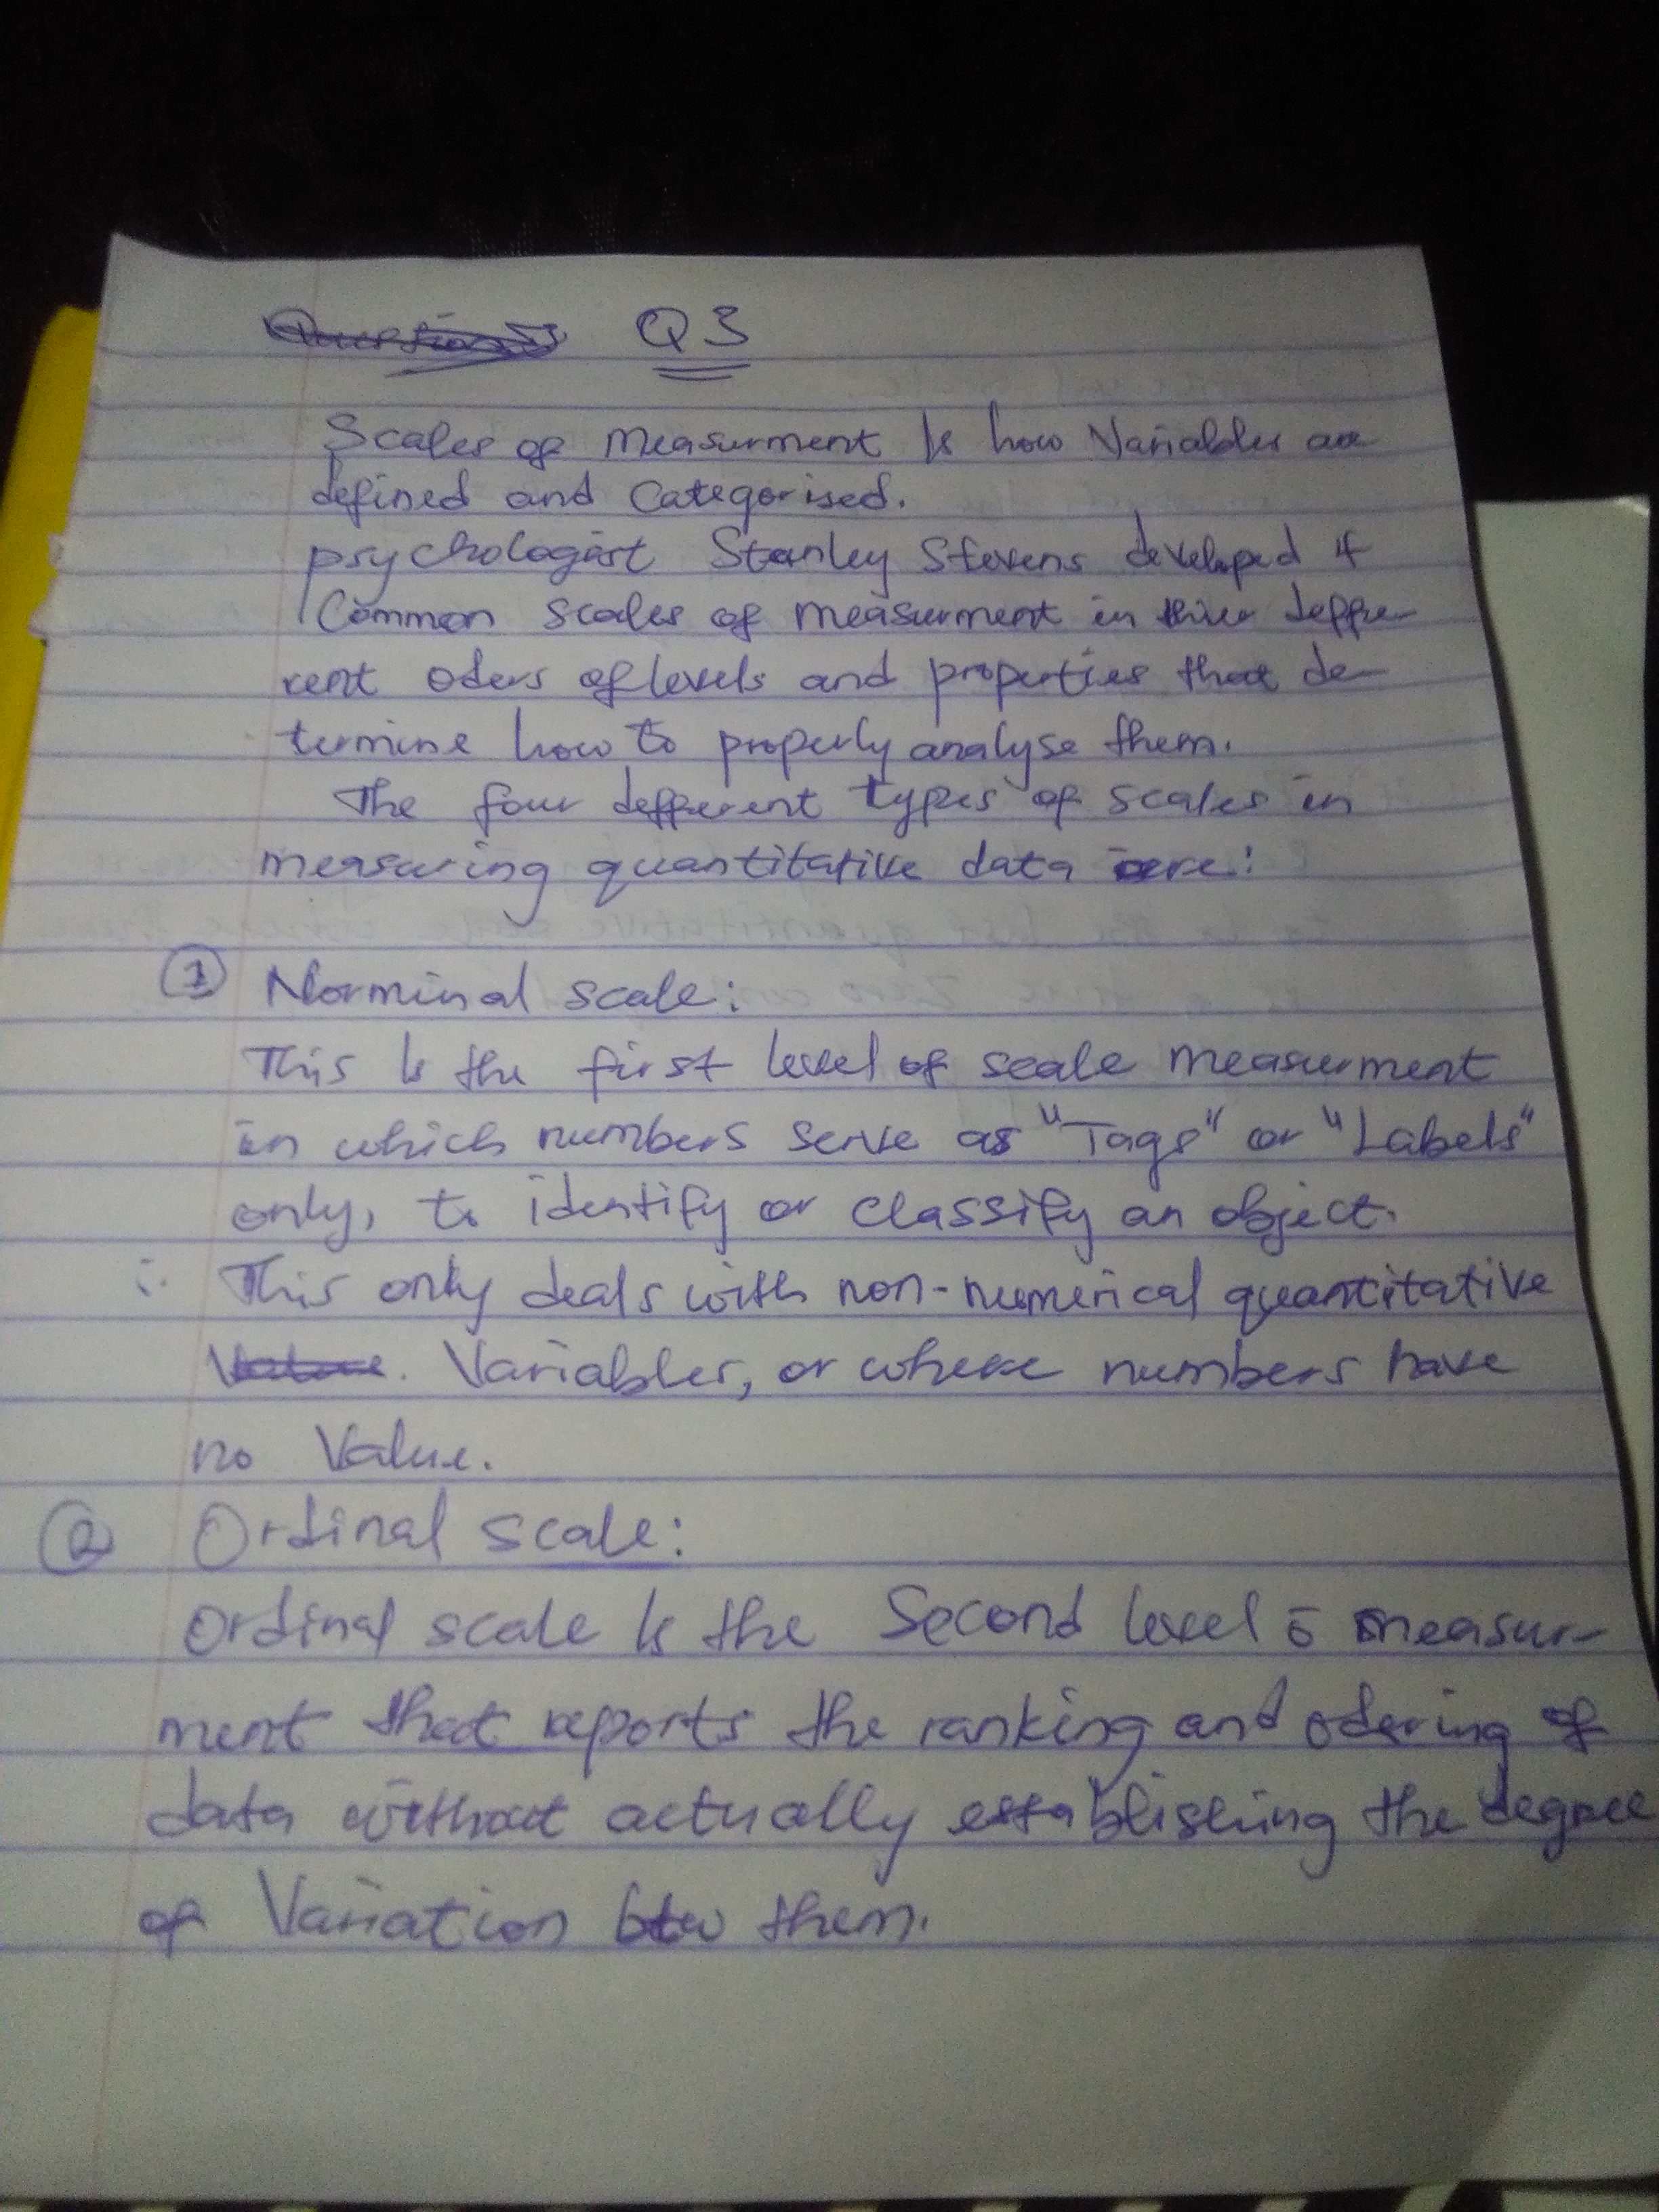 Q3
Scales of measurment Is how Variables are
defined and Categorised.
psychologist Stanley Stevens developed 4
Common scales of measurment in deffre-
rent oders of levels and properties that de-
termine how to properly analyse them.
The four defferent types of scales in
measuring quantitative data are:
1 Norminal scale:
This Is the first level of scale measurment
in which numbers serve as "Tags" or "Labels"
only, to identify or classify an object.
∴ This only deals with non-numerical quantitative
Variables, or where numbers have
no Value.
2 Ordinal scale:
Ordinal scale Is the Second level measur-
ment that reports the ranking and odering of
data without actually establishing the degree
of Variation btw them.